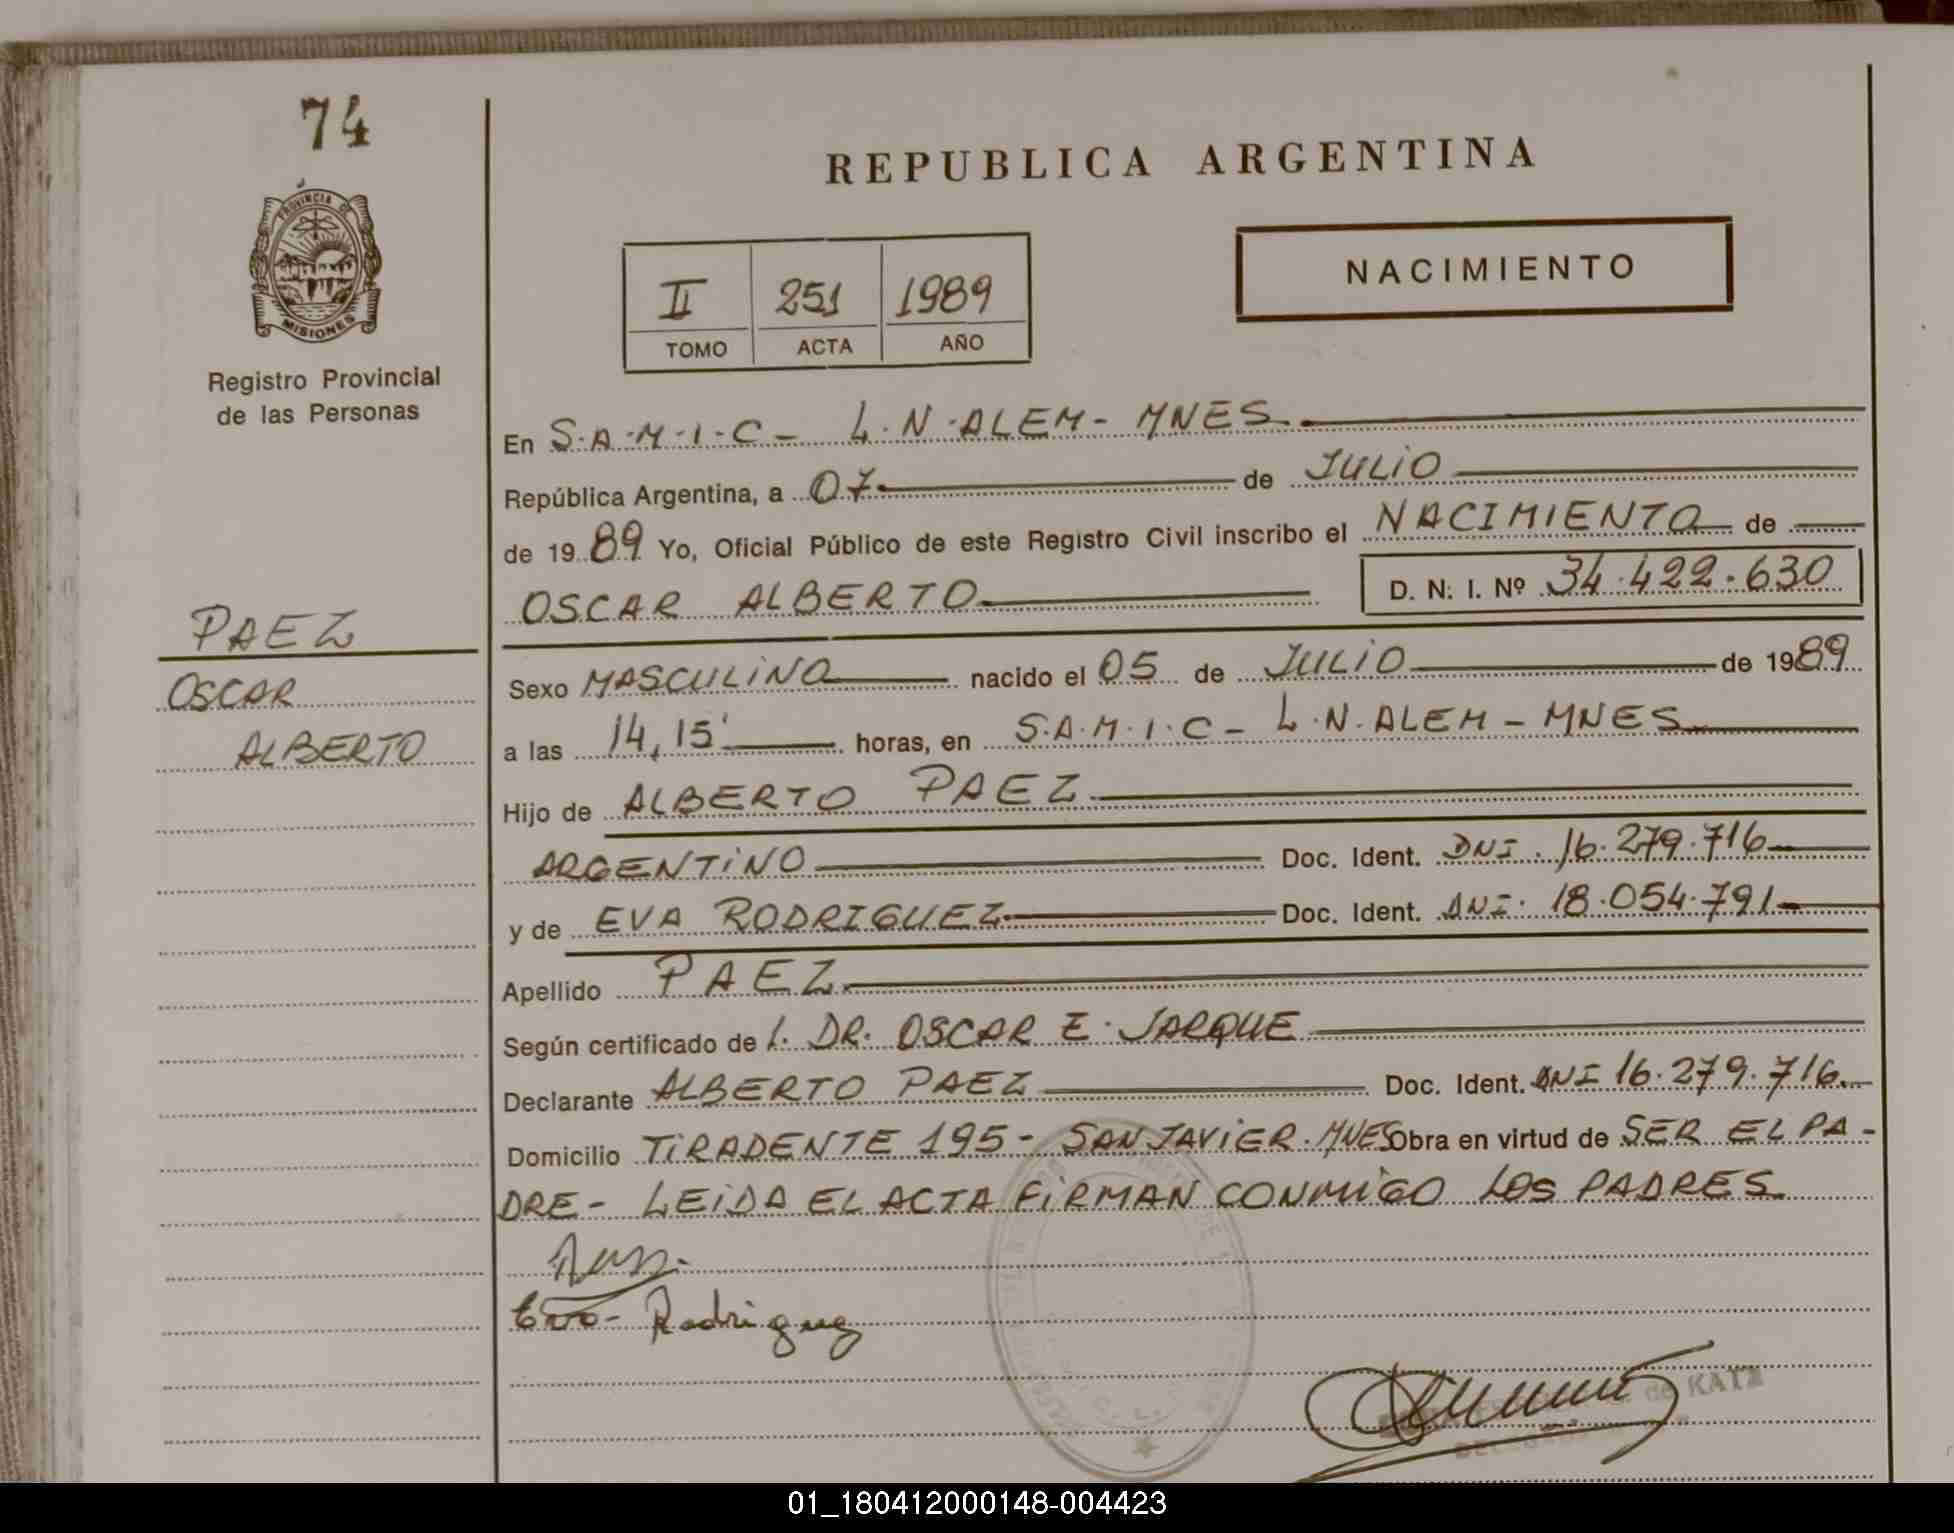 74
PROVINCIA DE
MISIONES
Registro Provincial
de las Personas
PAEZ
OSCAR
ALBERTO
REPUBLICA ARGENTINA
II 251 1989
TOMO ACTA AÑO
NACIMIENTO
En S.A.M.I.C - L.N.ALEM - MNES
República Argentina, a 07 de JULIO
de 1989 Yo, Oficial Público de este Registro Civil inscribo el NACIMIENTO de
OSCAR ALBERTO D. N. I. Nº 34.422.630
Sexo MASCULINO nacido el 05 de JULIO de 1989
a las 14,15' horas, en S.A.M.I.C - L.N.ALEM - MNES
Hijo de ALBERTO PAEZ
ARGENTINO Doc. Ident. DNI. 16.279.716
y de EVA RODRIGUEZ Doc. Ident. DNI. 18.054.791
Apellido PAEZ
Según certificado de l. DR. OSCAR E. JARQUE
Declarante ALBERTO PAEZ Doc. Ident. DNI 16.279.716
Domicilio TIRADENTE 195 - SAN JAVIER. MNES Obra en virtud de SER EL PA-
DRE - LEIDA EL ACTA FIRMAN CONMIGO LOS PADRES
Eva - Rodriguez
de KATZ
01_180412000148-004423